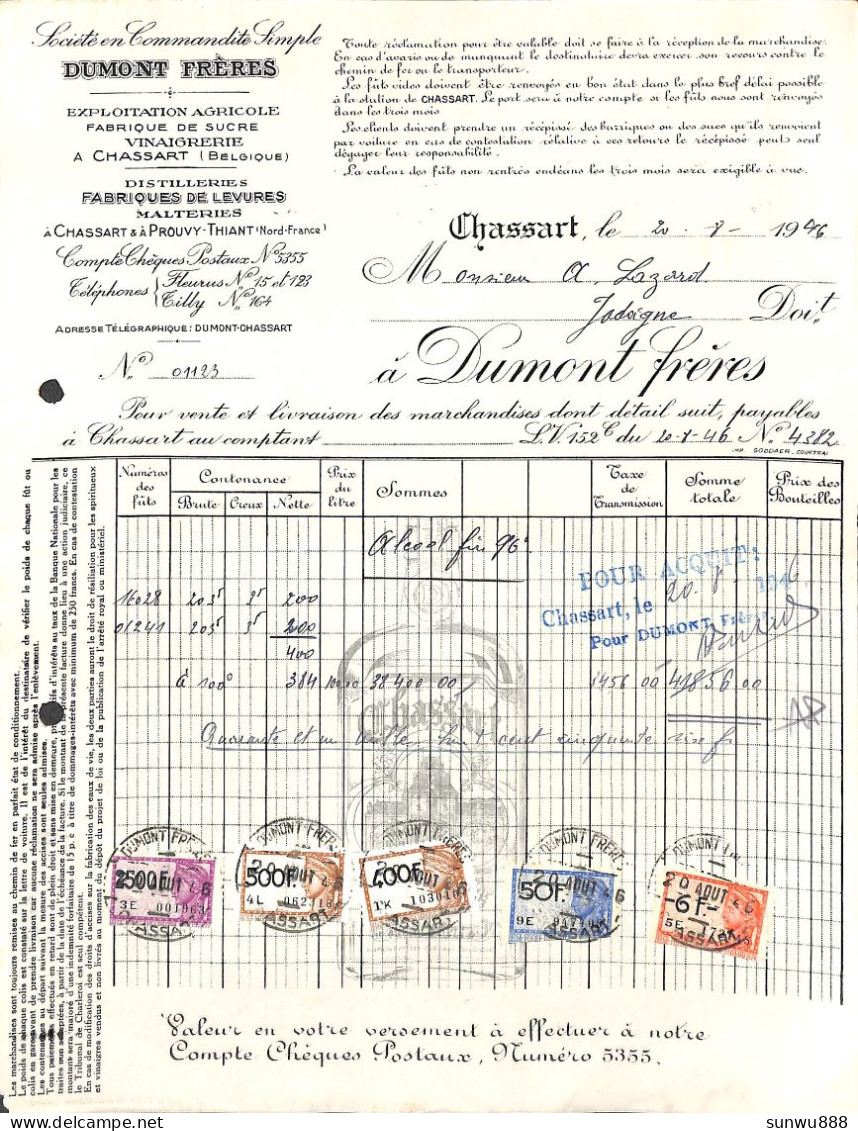 Société en Commandite Simple
DUMONT FRÈRES
EXPLOITATION AGRICOLE
FABRIQUE DE SUCRE
VINAIGRERIE
A CHASSART (BELGIQUE)
DISTILLERIES
FABRIQUES DE LEVURES
MALTERIES
À CHASSART & À PROUVY-THIANT (Nord-France)
Compte Chèques Postaux No 5355
Téléphones { Fleurus No 15 et 123
Tilly No 164
ADRESSE TÉLÉGRAPHIQUE: DUMONT-CHASSART
No 01123
Toute réclamation pour être valable doit se faire à la réception de la marchandise.
En cas d'avarie ou de manquant le destinataire devra exercer son recours contre le
chemin de fer ou le transporteur.
Les fûts vides doivent être renvoyés en bon état dans le plus bref délai possible
à la station de CHASSART. Le port sera à notre compte si les fûts nous sont renvoyés
dans les trois mois
Les clients doivent prendre un récépissé des barriques ou des sacs qu'ils renvoient
par voiture en cas de contestation relative à ces retours le récépissé peut seul
dégager leur responsabilité.
La valeur des fûts non rentrés endéans les trois mois sera exigible à vue.
Chassart, le 20-8-1946
Monsieur A. Lazard
Jodoigne Doit
à Dumont frères
Pour vente et livraison des marchandises dont détail suit, payables
à Chassart au comptant L.V. 152C du 20-8-46 No 4382
IMP. GODDAER-COURTRAI
Numéros des fûts Contenance Prix du litre Sommes Taxe de Transmission Somme totale Prix des Bouteilles
Brute Creux Nette
Alcool fin 96°
16028 203 3 200
01241 203 3 200
400
à 100° 384 100.00 38400 00 1456 00 41856 00
Quarante et un mille huit cent cinquante six f
POUR ACQUIT:
Chassart, le 20.8.1946
Pour DUMONT Frères
Chassart
DUMONT FRERES
20 AOUT 46
CHASSART
2500F.
3E 001963
DUMONT FRERES
20 AOUT 46
CHASSART
500F.
4L 062318
DUMONT FRERES
20 AOUT 46
CHASSART
400F.
1K
DUMONT FRERES
20 AOUT 46
CHASSART
50F.
9E
DUMONT
20 AOUT 46
CHASSART
6F.-
5E
Valeur en votre versement à effectuer à notre
Compte Chèques Postaux, Numéro 5355.
Les marchandises sont toujours remises au chemin de fer en parfait état de conditionnement.
Le poids de chaque colis est constaté sur la lettre de voiture. Il est de l'intérêt du destinataire de vérifier le poids de chaque fût ou
colis en gare avant de prendre livraison car aucune réclamation ne sera admise après l'enlèvement.
Les contenances au départ suivant la mesure des accises sont seules admises.
Tous paiements effectués en retard sont de plein droit et sans mise en demeure, d'intérêts au taux de la Banque Nationale pour les
traites non acceptées, à partir de la date de l'échéance de la facture. Si le montant de la présente facture donne lieu à une action judiciaire, ce
montant sera majoré d'une indemnité forfaitaire de 15 p. c. à titre de dommages-intérêts avec minimum de 250 francs. En cas de contestation
le Tribunal de Charleroi est seul compétent.
En cas de modification des droits d'accises sur la fabrication des eaux de vie, les deux parties auront le droit de résiliation pour les spiritueux
et vinaigres vendus et non livrés au moment du dépôt du projet de loi ou de la publication de l'arrêté royal ou ministériel.
sunwu888